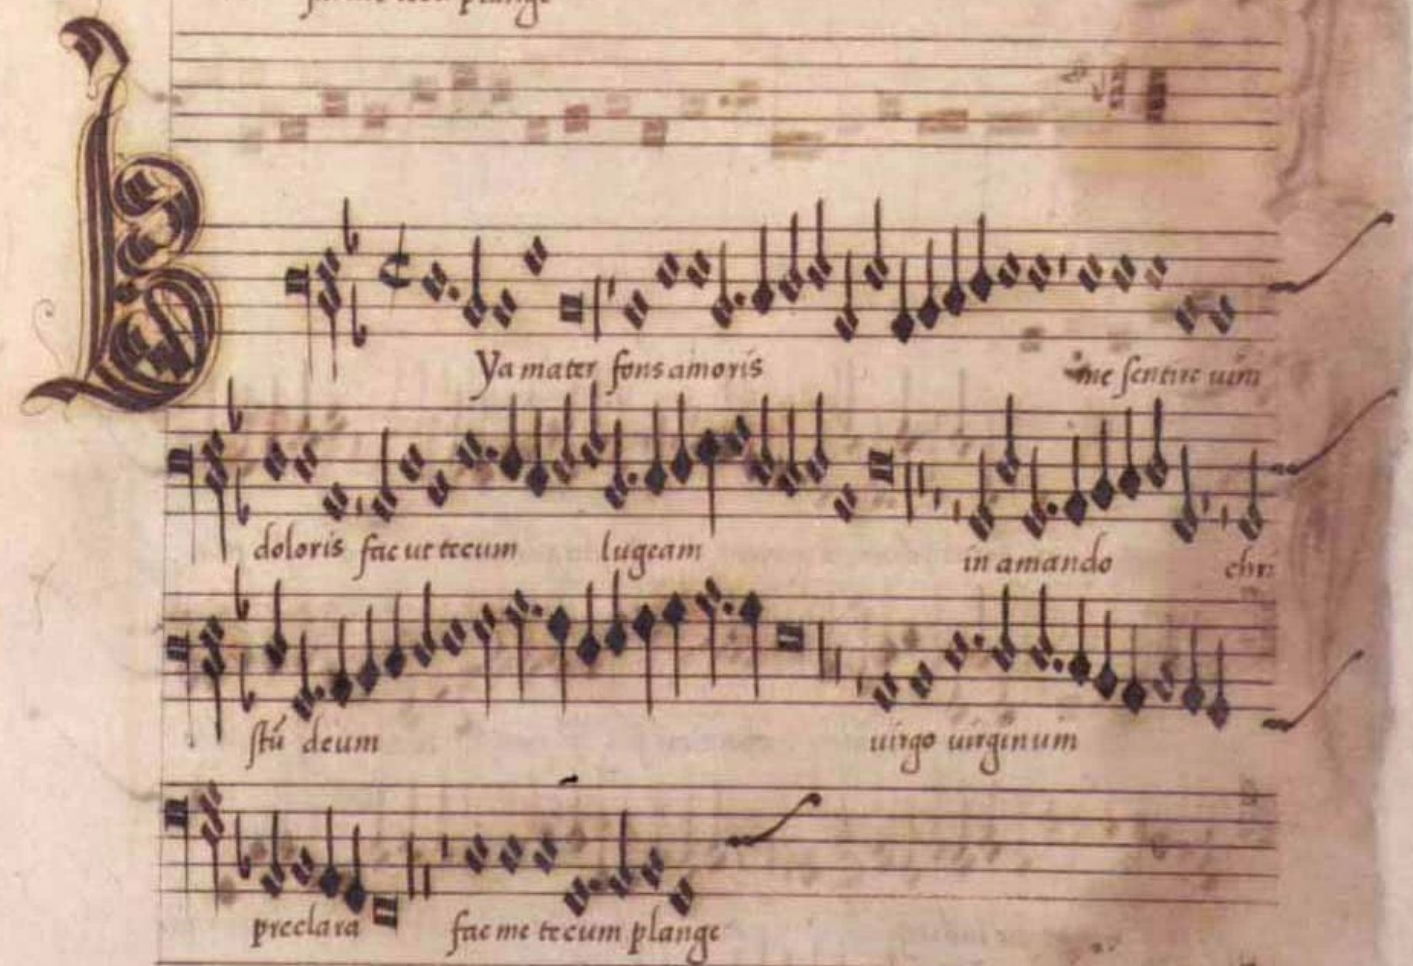 fac me tecum plange
Ya mater fons amoris me sentire uim
doloris fac ut tecum lugeam in amando chri
stū deum uirgo uirginum
preclara fac me tecum plange